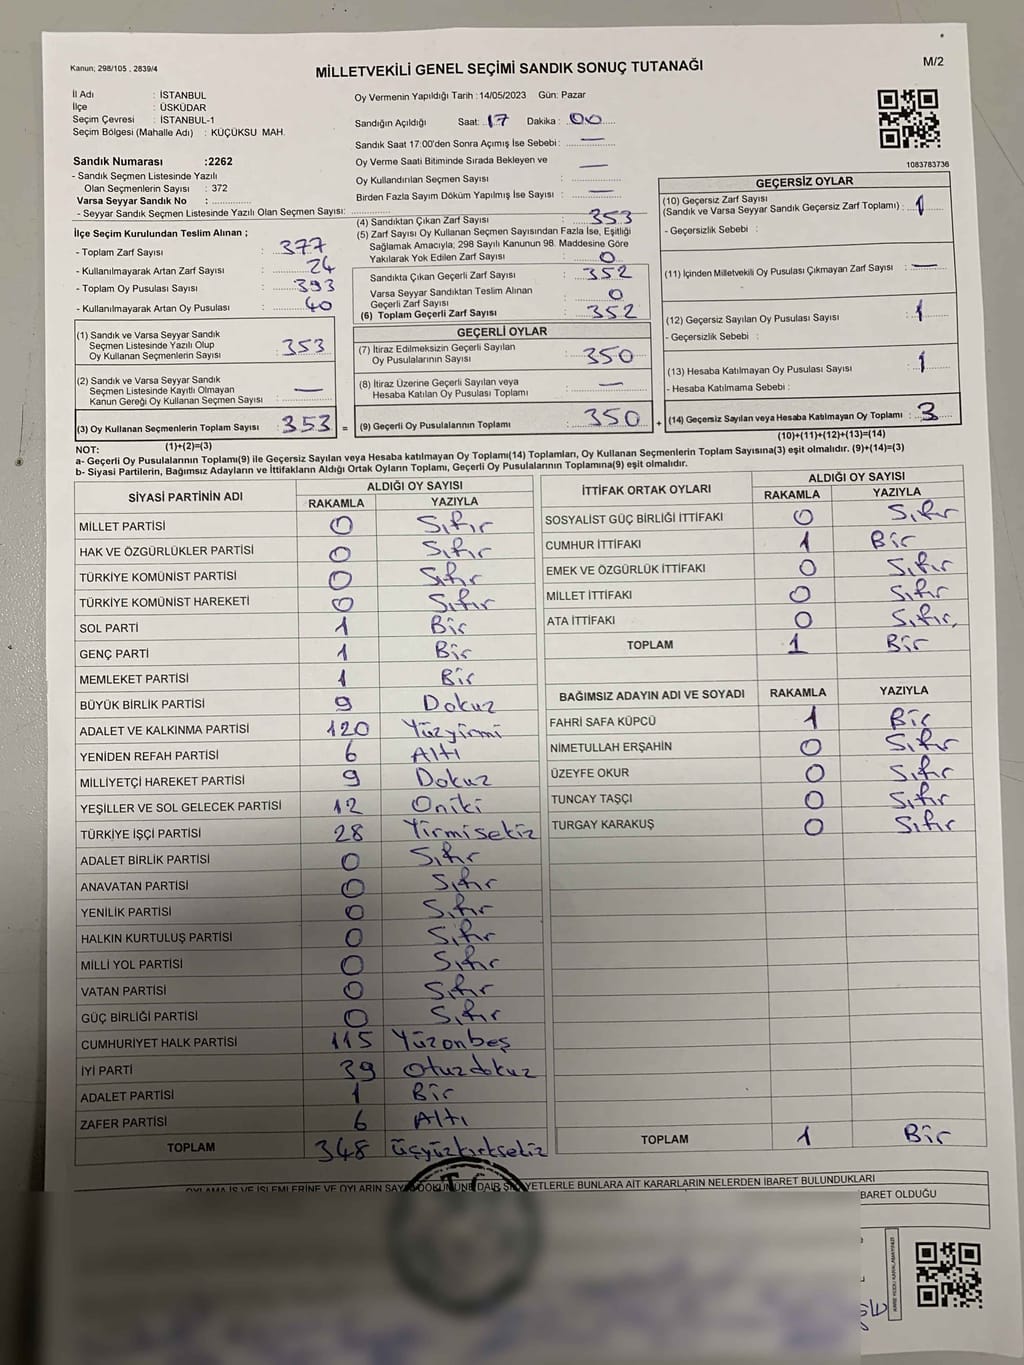 Kanun; 298/105 , 2839/4
MİLLETVEKİLİ GENEL SEÇİMİ SANDIK SONUÇ TUTANAĞI
M/2
İl Adı : İSTANBUL
İlçe : ÜSKÜDAR
Seçim Çevresi : İSTANBUL-1
Seçim Bölgesi (Mahalle Adı) : KÜÇÜKSU MAH.
Sandık Numarası :2262
- Sandık Seçmen Listesinde Yazılı
Olan Seçmenlerin Sayısı : 372
Varsa Seyyar Sandık No :
- Seyyar Sandık Seçmen Listesinde Yazılı Olan Seçmen Sayısı:
Oy Vermenin Yapıldığı Tarih : 14/05/2023 Gün: Pazar
Sandığın Açıldığı Saat: 17 Dakika : 00
Sandık Saat 17:00'den Sonra Açımış İse Sebebi : —
Oy Verme Saati Bitiminde Sırada Bekleyen ve
Oy Kullandırılan Seçmen Sayısı : —
Birden Fazla Sayım Döküm Yapılmış İse Sayısı : —
1083783736
İlçe Seçim Kurulundan Teslim Alınan ;
- Toplam Zarf Sayısı : 377
- Kullanılmayarak Artan Zarf Sayısı : 24
- Toplam Oy Pusulası Sayısı : 393
- Kullanılmayarak Artan Oy Pusulası : 40
(1) Sandık ve Varsa Seyyar Sandık
Seçmen Listesinde Yazılı Olup
Oy Kullanan Seçmenlerin Sayısı : 353
(2) Sandık ve Varsa Seyyar Sandık
Seçmen Listesinde Kayıtlı Olmayan
Kanun Gereği Oy Kullanan Seçmen Sayısı : —
(3) Oy Kullanan Seçmenlerin Toplam Sayısı : 353 =
(1)+(2)=(3)
(4) Sandıktan Çıkan Zarf Sayısı : 353
(5) Zarf Sayısı Oy Kullanan Seçmen Sayısından Fazla İse, Eşitliği
Sağlamak Amacıyla; 298 Sayılı Kanunun 98. Maddesine Göre
Yakılarak Yok Edilen Zarf Sayısı : 0
Sandıkta Çıkan Geçerli Zarf Sayısı : 352
Varsa Seyyar Sandıktan Teslim Alınan
Geçerli Zarf Sayısı : 0
(6) Toplam Geçerli Zarf Sayısı : 352
GEÇERLİ OYLAR
(7) İtiraz Edilmeksizin Geçerli Sayılan
Oy Pusulalarının Sayısı : 350
(8) İtiraz Üzerine Geçerli Sayılan veya
Hesaba Katılan Oy Pusulası Toplamı : —
(9) Geçerli Oy Pusulalarının Toplamı : 350 +
GEÇERSİZ OYLAR
(10) Geçersiz Zarf Sayısı
(Sandık ve Varsa Seyyar Sandık Geçersiz Zarf Toplamı) : 1
- Geçersizlik Sebebi :
(11) İçinden Milletvekili Oy Pusulası Çıkmayan Zarf Sayısı : —
(12) Geçersiz Sayılan Oy Pusulası Sayısı : 1
- Geçersizlik Sebebi :
(13) Hesaba Katılmayan Oy Pusulası Sayısı : 1
- Hesaba Katılmama Sebebi :
(14) Geçersiz Sayılan veya Hesaba Katılmayan Oy Toplamı : 3
(10)+(11)+(12)+(13)=(14)
NOT:
a- Geçerli Oy Pusulalarının Toplamı(9) ile Geçersiz Sayılan veya Hesaba katılmayan Oy Toplamı(14) Toplamları, Oy Kullanan Seçmenlerin Toplam Sayısına(3) eşit olmalıdır. (9)+(14)=(3)
b- Siyasi Partilerin, Bağımsız Adayların ve İttifakların Aldığı Ortak Oyların Toplamı, Geçerli Oy Pusulalarının Toplamına(9) eşit olmalıdır.
SİYASİ PARTİNİN ADI ALDIĞI OY SAYISI
RAKAMLA YAZIYLA
MİLLET PARTİSİ 0 Sıfır
HAK VE ÖZGÜRLÜKLER PARTİSİ 0 Sıfır
TÜRKİYE KOMÜNİST PARTİSİ 0 Sıfır
TÜRKİYE KOMÜNİST HAREKETİ 0 Sıfır
SOL PARTİ 1 Bir
GENÇ PARTİ 1 Bir
MEMLEKET PARTİSİ 1 Bir
BÜYÜK BİRLİK PARTİSİ 9 Dokuz
ADALET VE KALKINMA PARTİSİ 120 Yüzyirmi
YENİDEN REFAH PARTİSİ 6 Altı
MİLLİYETÇİ HAREKET PARTİSİ 9 Dokuz
YEŞİLLER VE SOL GELECEK PARTİSİ 12 Oniki
TÜRKİYE İŞÇİ PARTİSİ 28 Yirmisekiz
ADALET BİRLİK PARTİSİ 0 Sıfır
ANAVATAN PARTİSİ 0 Sıfır
YENİLİK PARTİSİ 0 Sıfır
HALKIN KURTULUŞ PARTİSİ 0 Sıfır
MİLLİ YOL PARTİSİ 0 Sıfır
VATAN PARTİSİ 0 Sıfır
GÜÇ BİRLİĞİ PARTİSİ 0 Sıfır
CUMHURİYET HALK PARTİSİ 115 Yüzonbeş
İYİ PARTİ 39 Otuzdokuz
ADALET PARTİSİ 1 Bir
ZAFER PARTİSİ 6 Altı
TOPLAM 348 üçyüzkırksekiz
İTTİFAK ORTAK OYLARI ALDIĞI OY SAYISI
RAKAMLA YAZIYLA
SOSYALİST GÜÇ BİRLİĞİ İTTİFAKI 0 Sıfır
CUMHUR İTTİFAKI 1 Bir
EMEK VE ÖZGÜRLÜK İTTİFAKI 0 Sıfır
MİLLET İTTİFAKI 0 Sıfır
ATA İTTİFAKI 0 Sıfır
TOPLAM 1 Bir
BAĞIMSIZ ADAYIN ADI VE SOYADI RAKAMLA YAZIYLA
FAHRİ SAFA KÜPCÜ 1 Bir
NİMETULLAH ERŞAHİN 0 Sıfır
ÜZEYFE OKUR 0 Sıfır
TUNCAY TAŞÇI 0 Sıfır
TURGAY KARAKUŞ 0 Sıfır
TOPLAM 1 Bir
OYLAMA İŞ VE İŞLEMLERİNE VE OYLARIN SAYI DÖKÜMÜNE DAİR ŞİKAYETLERLE BUNLARA AİT KARARLARIN NELERDEN İBARET BULUNDUKLARI
BARET OLDUĞU
T.C.